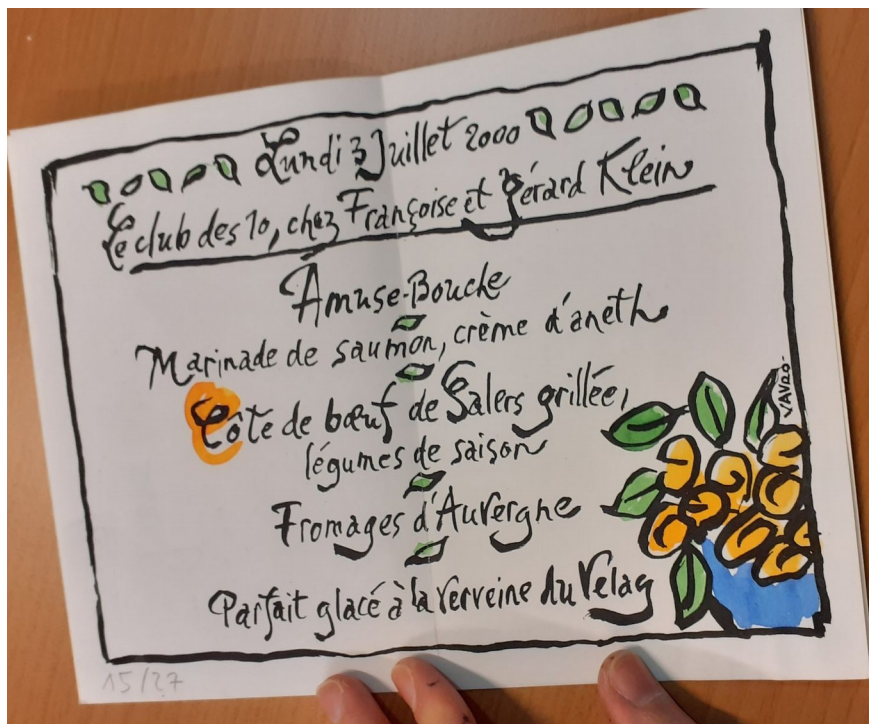 Lundi 3 Juillet 2000
Le club des 10, chez Françoise et Gérard Klein
Amuse-Bouche
Marinade de saumon, crème d'aneth
Côte de bœuf de Salers grillée,
légumes de saison
Fromages d'Auvergne
Parfait glacé à la verveine du Velay
VAVRO
15/27